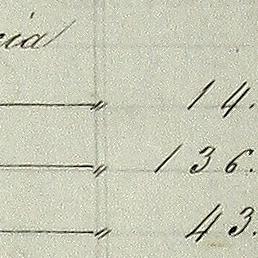 cia
" 14.
" 136.
" 43.